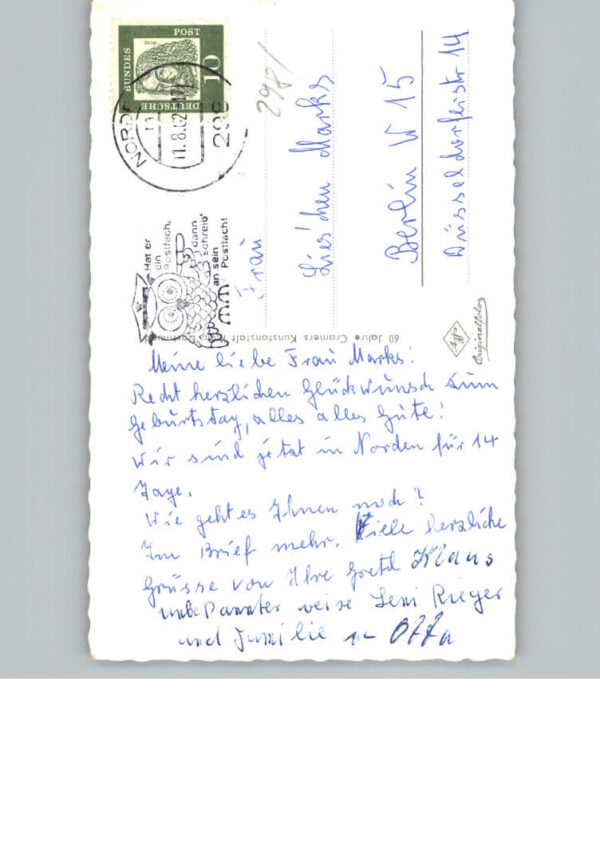 DEUTSCHE
BUNDES
POST
10
NORDE
11.8.62
298
Hat er
ein
Postfach,
dann
schreib'
an sein
Postfach!
2981
Frau
Lieschen Marks
Berlin W 15
Düsseldorferstr 14
60 Jahre Cramers Kunstanstalt
Agfa
Originalfoto
Meine liebe Frau Marks!
Recht herzlichen Glückwunsch zum
Geburtstag, alles alles Gute!
Wir sind jetzt in Norden für 14
Tage.
Wie geht es Ihnen noch?
Im Brief mehr. Viele herzliche
Grüsse von Ihre Gretel Klaus
unbekannter weise Leni Rieger
und Familie